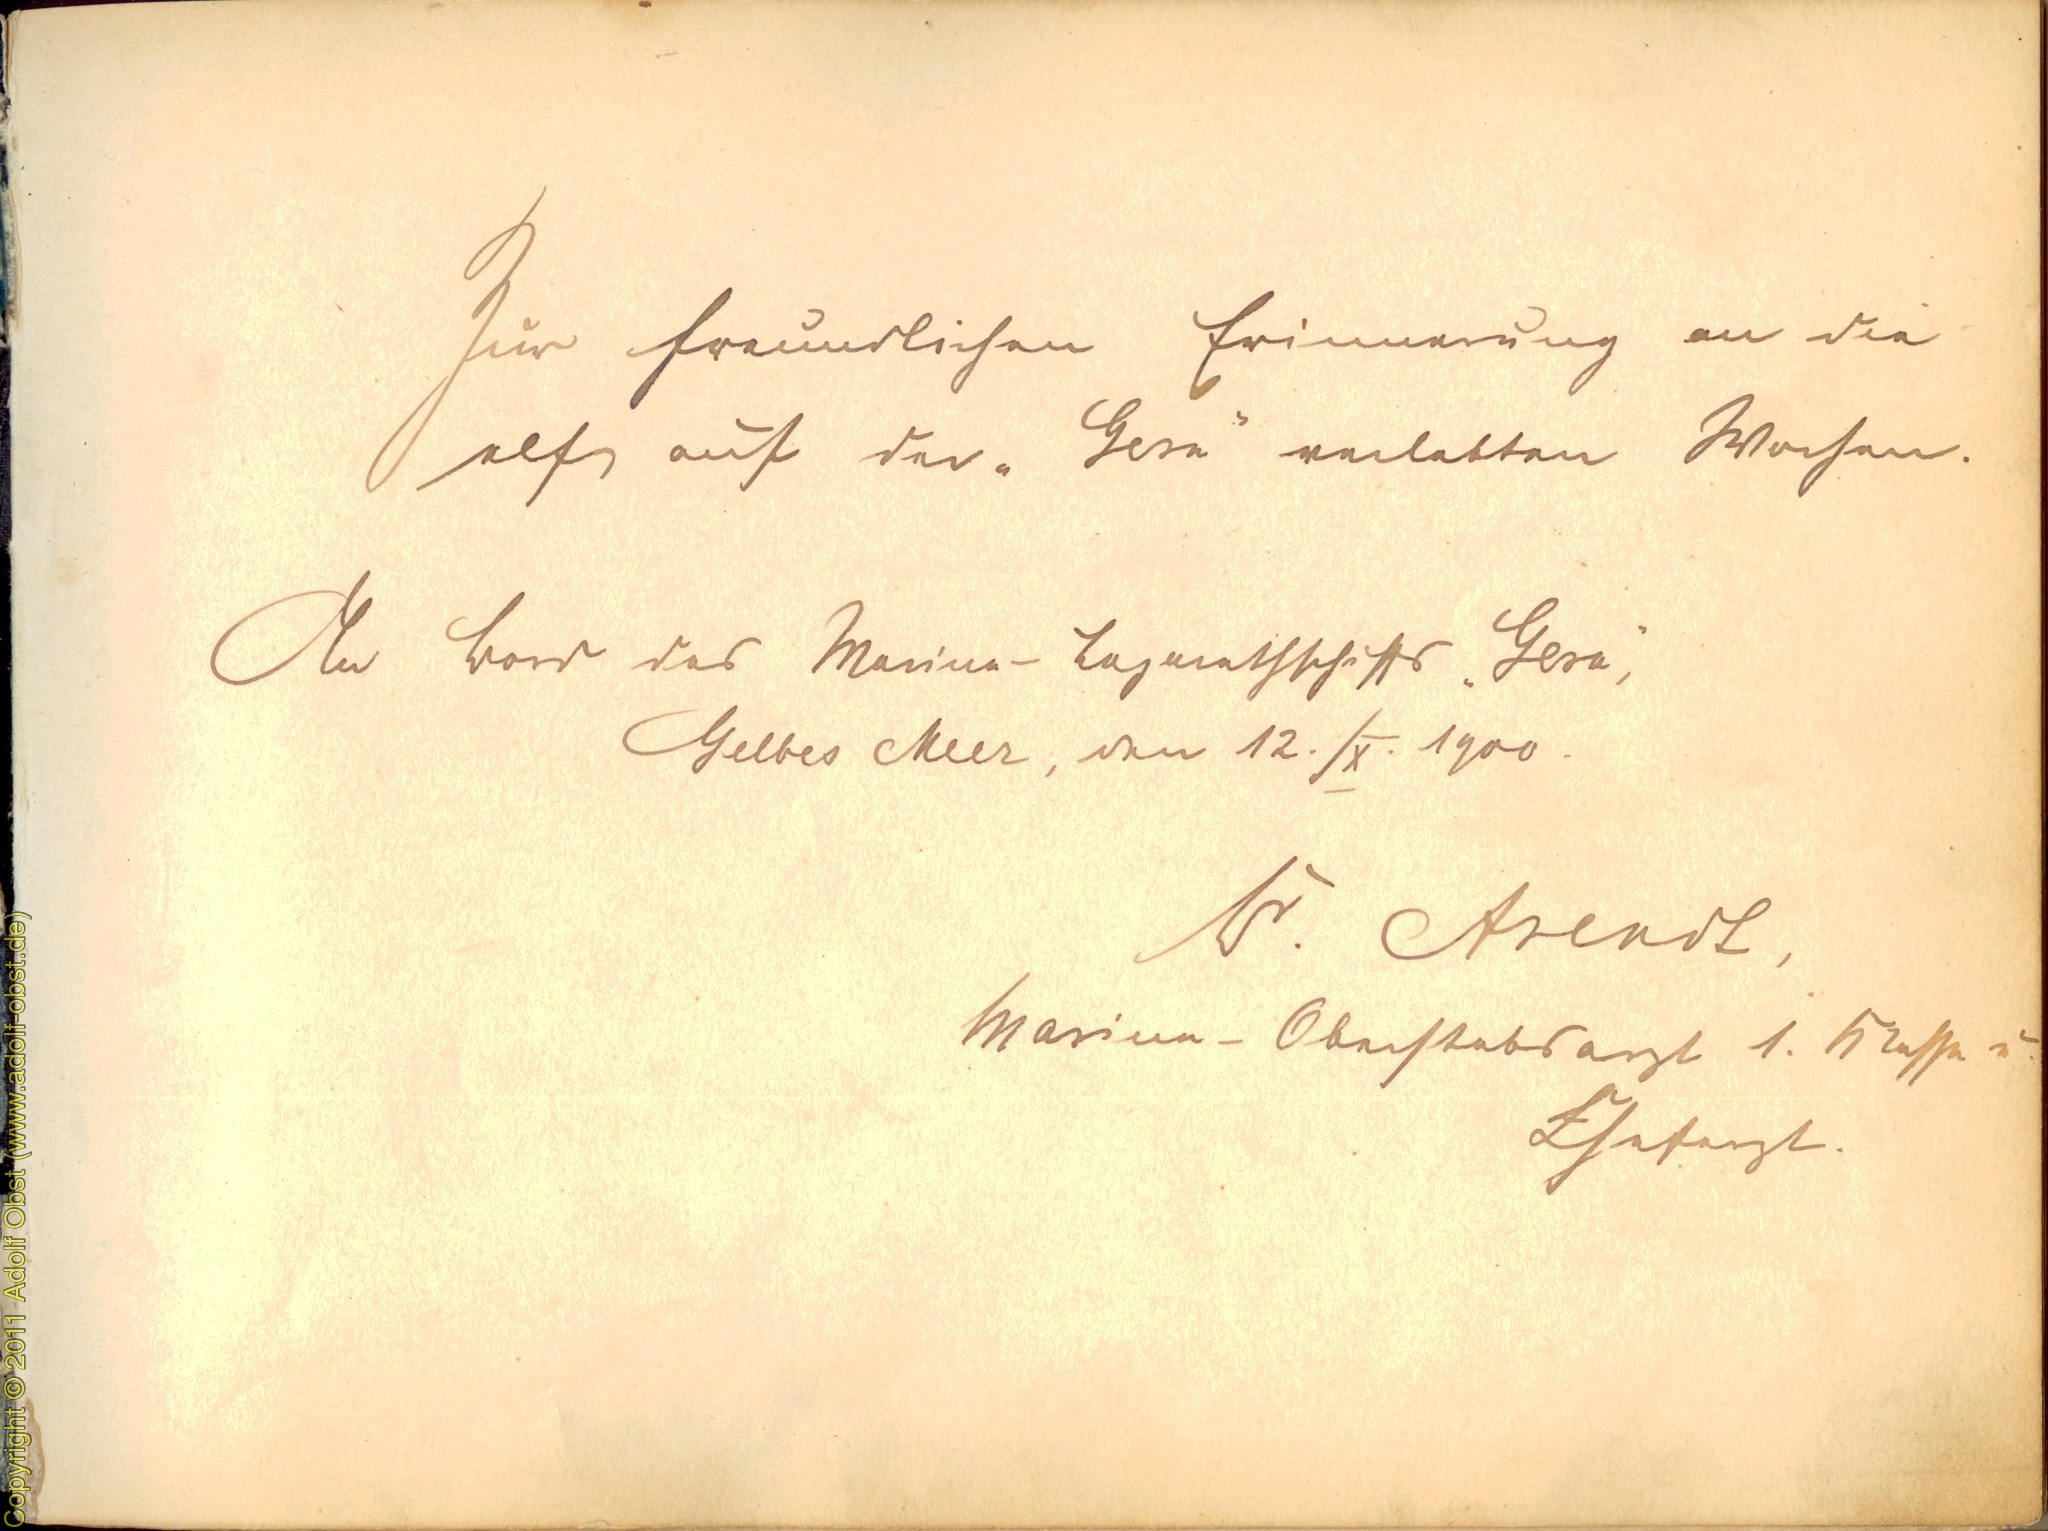 Zur freundlichen Erinnerung an die
elf auf der „Gera“ verlebten Wochen.
An Bord des Marine-Lazarethschiffs „Gera“,
Gelbes Meer, den 12./X. 1900.
Dr. Arendt,
Marine-Oberstabsarzt 1. Klasse u.
Chefarzt.
Copyright © 2011 Adolf Obst (www.adolf-obst.de)